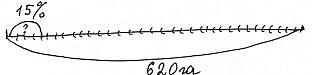 15%
?
620га